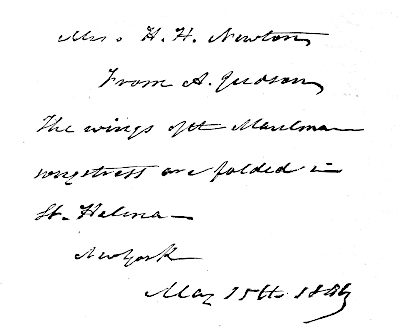 Mrs. H. H. Newton,
From A. Judson,
The wings of the Maulmain
songstress are folded in
St. Helena
New York
May 15th